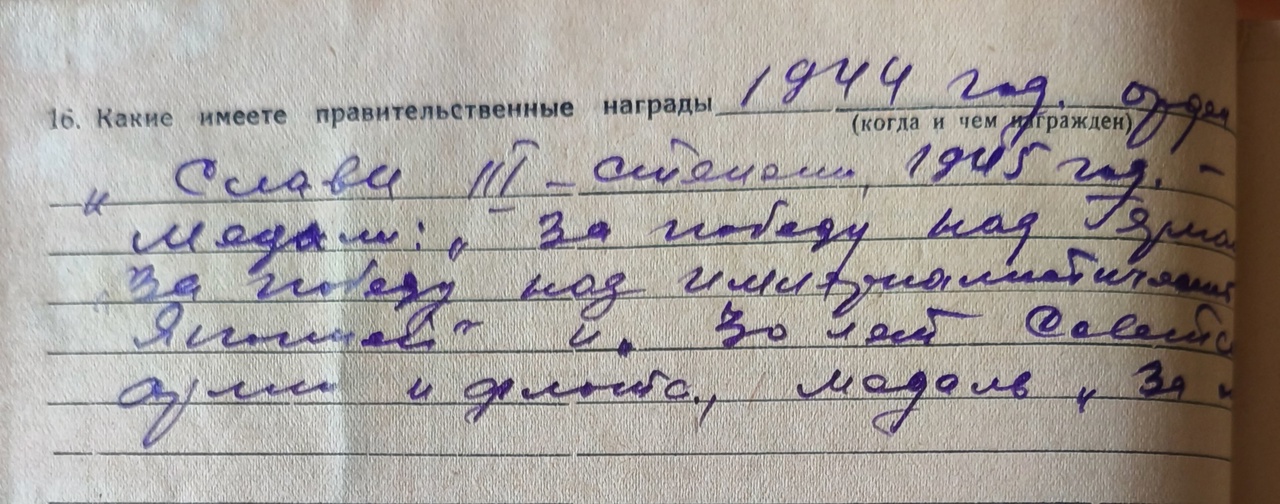 16. Какие имеете правительственные награды 1944 год. орден
(когда и чем награжден)
„ Славы III – степени, 1945 год. –
Медали: „ За победу над Герма
„ За победу над империалистической
Японией“ и „ 30 лет Советс
армии и флота, медаль „ За